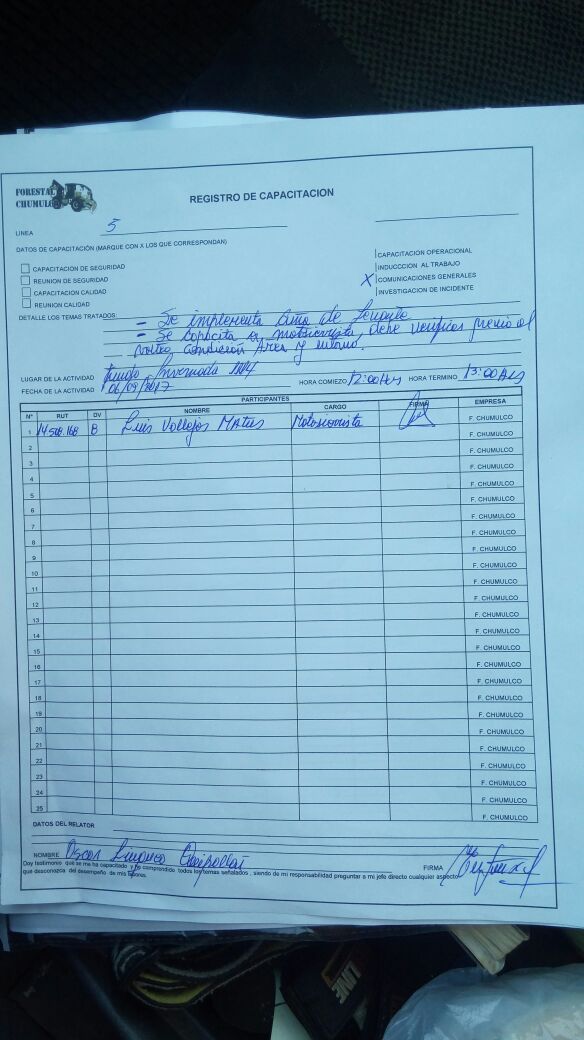 FORESTAL
CHUMULCO
REGISTRO DE CAPACITACION
LINEA 5
DATOS DE CAPACITACIÓN (MARQUE CON X LOS QUE CORRESPONDAN)
CAPACITACION DE SEGURIDAD
REUNION DE SEGURIDAD
CAPACITACION CALIDAD
REUNION CALIDAD
CAPACITACIÓN OPERACIONAL
INDUCCCION AL TRABAJO
X COMUNICACIONES GENERALES
INVESTIGACION DE INCIDENTE
DETALLE LOS TEMAS TRATADOS:
- Se implementa de
- Se capacita a motosierrista debe verificar previo al
condición Area y entorno.
LUGAR DE LA ACTIVIDAD Fundo Invernada
FECHA DE LA ACTIVIDAD 06/09/2017 HORA COMIEZO 12:00 Hrs HORA TERMINO 13:00 Hrs
PARTICIPANTES
N° RUT DV NOMBRE CARGO FIRMA EMPRESA
1 8 Luis Vallejos Matus Motosierrista F. CHUMULCO
2 F. CHUMULCO
3 F. CHUMULCO
4 F. CHUMULCO
5 F. CHUMULCO
6 F. CHUMULCO
7 F. CHUMULCO
8 F. CHUMULCO
9 F. CHUMULCO
10 F. CHUMULCO
11 F. CHUMULCO
12 F. CHUMULCO
13 F. CHUMULCO
14 F. CHUMULCO
15 F. CHUMULCO
16 F. CHUMULCO
17 F. CHUMULCO
18 F. CHUMULCO
19 F. CHUMULCO
20 F. CHUMULCO
21 F. CHUMULCO
22 F. CHUMULCO
23 F. CHUMULCO
24 F. CHUMULCO
25 F. CHUMULCO
DATOS DEL RELATOR
NOMBRE Oscar FIRMA
Doy testimonio que se me ha capacitado y he comprendido todos los temas señalados, siendo de mi responsabilidad preguntar a mi jefe directo cualquier aspecto
que desconozca del desempeño de mis labores.
LINE